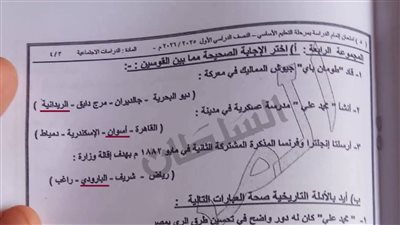 ( ٥ ) امتحان إتمام الدراسة بمرحلة التعليم الأساسي - النصف الدراسي الأول ٢٠٢٥/٢٠٢٦ م - المادة : الدراسات الاجتماعية ٤/٣
المجموعة الرابعة : أ) اختر الإجابة الصحيحة مما بين القوسين : -
١- قاد "طومان باي" جيوش المماليك في معركة :
( ديو البحرية - جالديران - مرج دابق - الريدانية )
٢- أنشأ " محمد علي" مدرسة عسكرية في مدينة :
( القاهرة - أسوان - الإسكندرية - دمياط )
٣- أرسلتا إنجلترا وفرنسا المذكرة المشتركة الثانية في مايو ١٨٨٢م بهدف إقالة وزارة :
( رياض - شريف - البارودي - راغب )
ب) أيد بالأدلة التاريخية صحة العبارات التالية :
١- " محمد علي" كان له دور واضح في تحسين طرق الري بمصر
السلطان